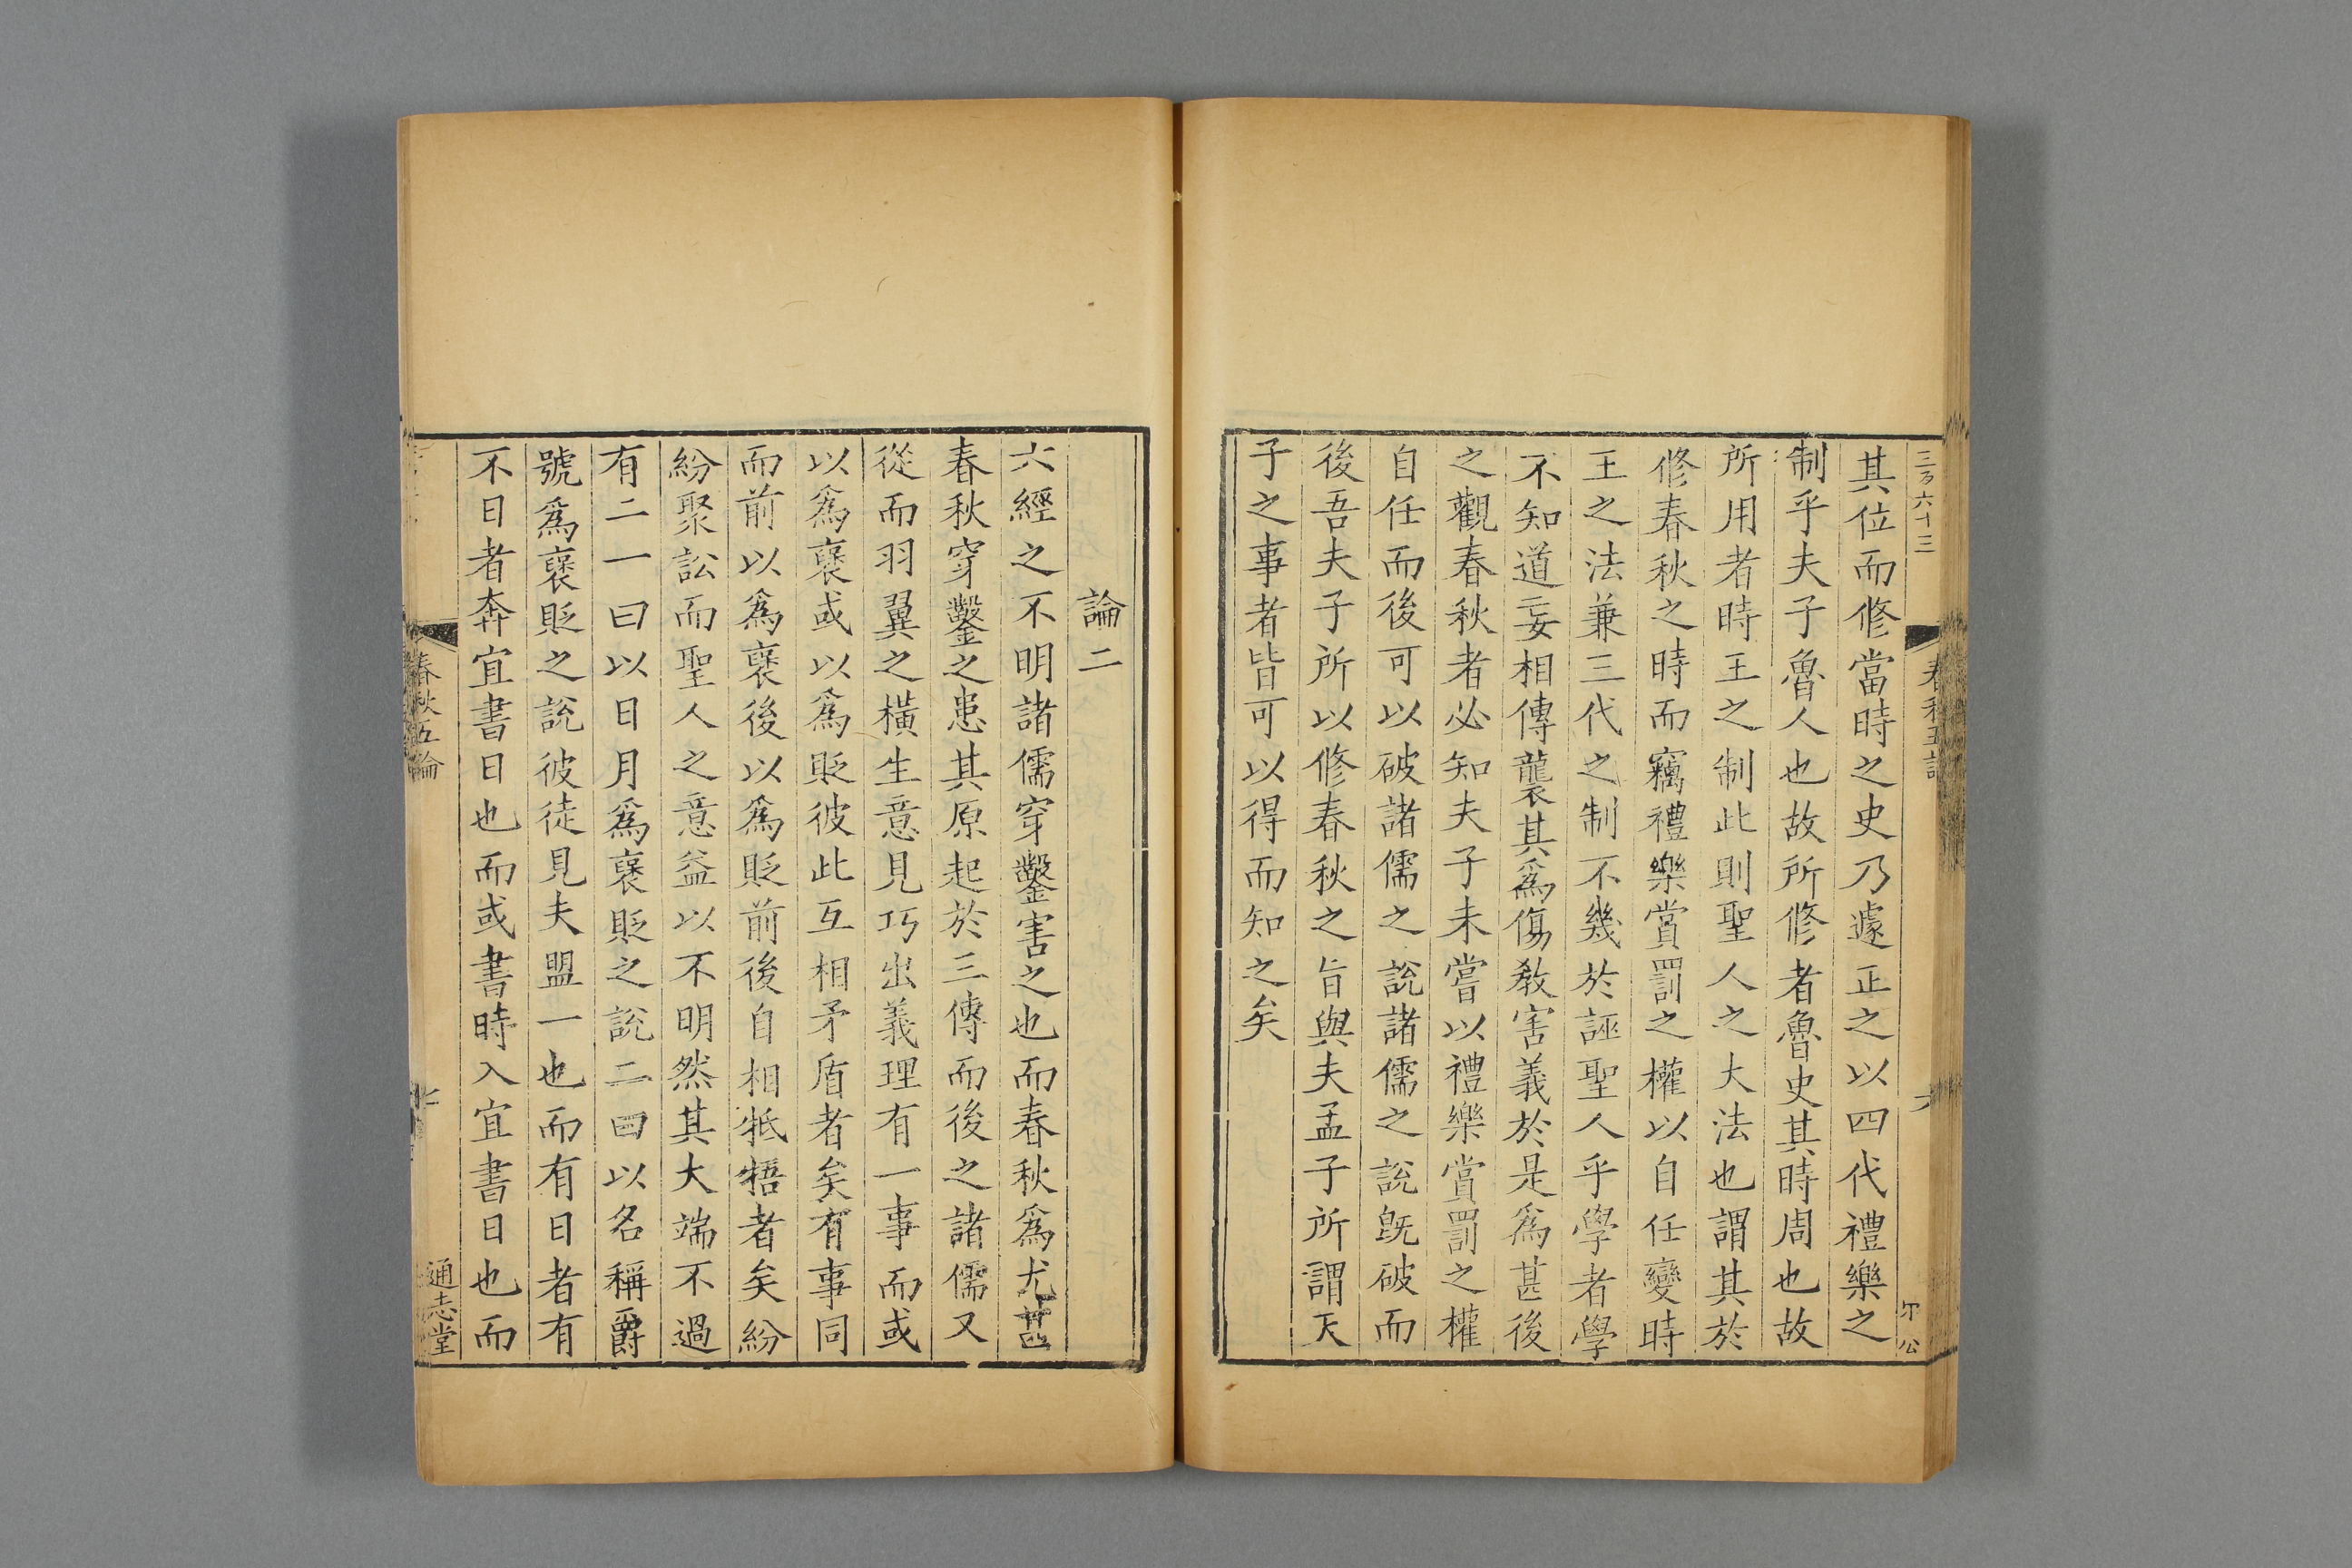 三百六十三
春秋五論
六
其位而修當時之史乃遽正之以四代禮樂之
制乎夫子魯人也故所修者魯史其時周也故
所用者時王之制此則聖人之大法也謂其於
修春秋之時而竊禮樂賞罰之權以自任變時
王之法兼三代之制不幾於誣聖人乎學者學
不知道妄相傳襲其爲傷教害義於是爲甚後
之觀春秋者必知夫子未嘗以禮樂賞罰之權
自任而後可以破諸儒之說諸儒之說旣破而
後吾夫子所以修春秋之旨與夫孟子所謂天
子之事者皆可以得而知之矣
論二
六經之不明諸儒穿鑿害之也而春秋爲尤甚
春秋穿鑿之患其原起於三傳而後之諸儒又
從而羽翼之橫生意見巧出義理有一事而或
以爲襃或以爲貶彼此互相矛盾者矣有事同
而前以爲襃後以爲貶前後自相牴牾者矣紛
紛聚訟而聖人之意益以不明然其大端不過
有二一曰以日月爲襃貶之說二曰以名稱爵
號爲襃貶之說彼徒見夫盟一也而有日者有
不日者奔宜書日也而或書時入宜書日也而
春秋五論
通志堂